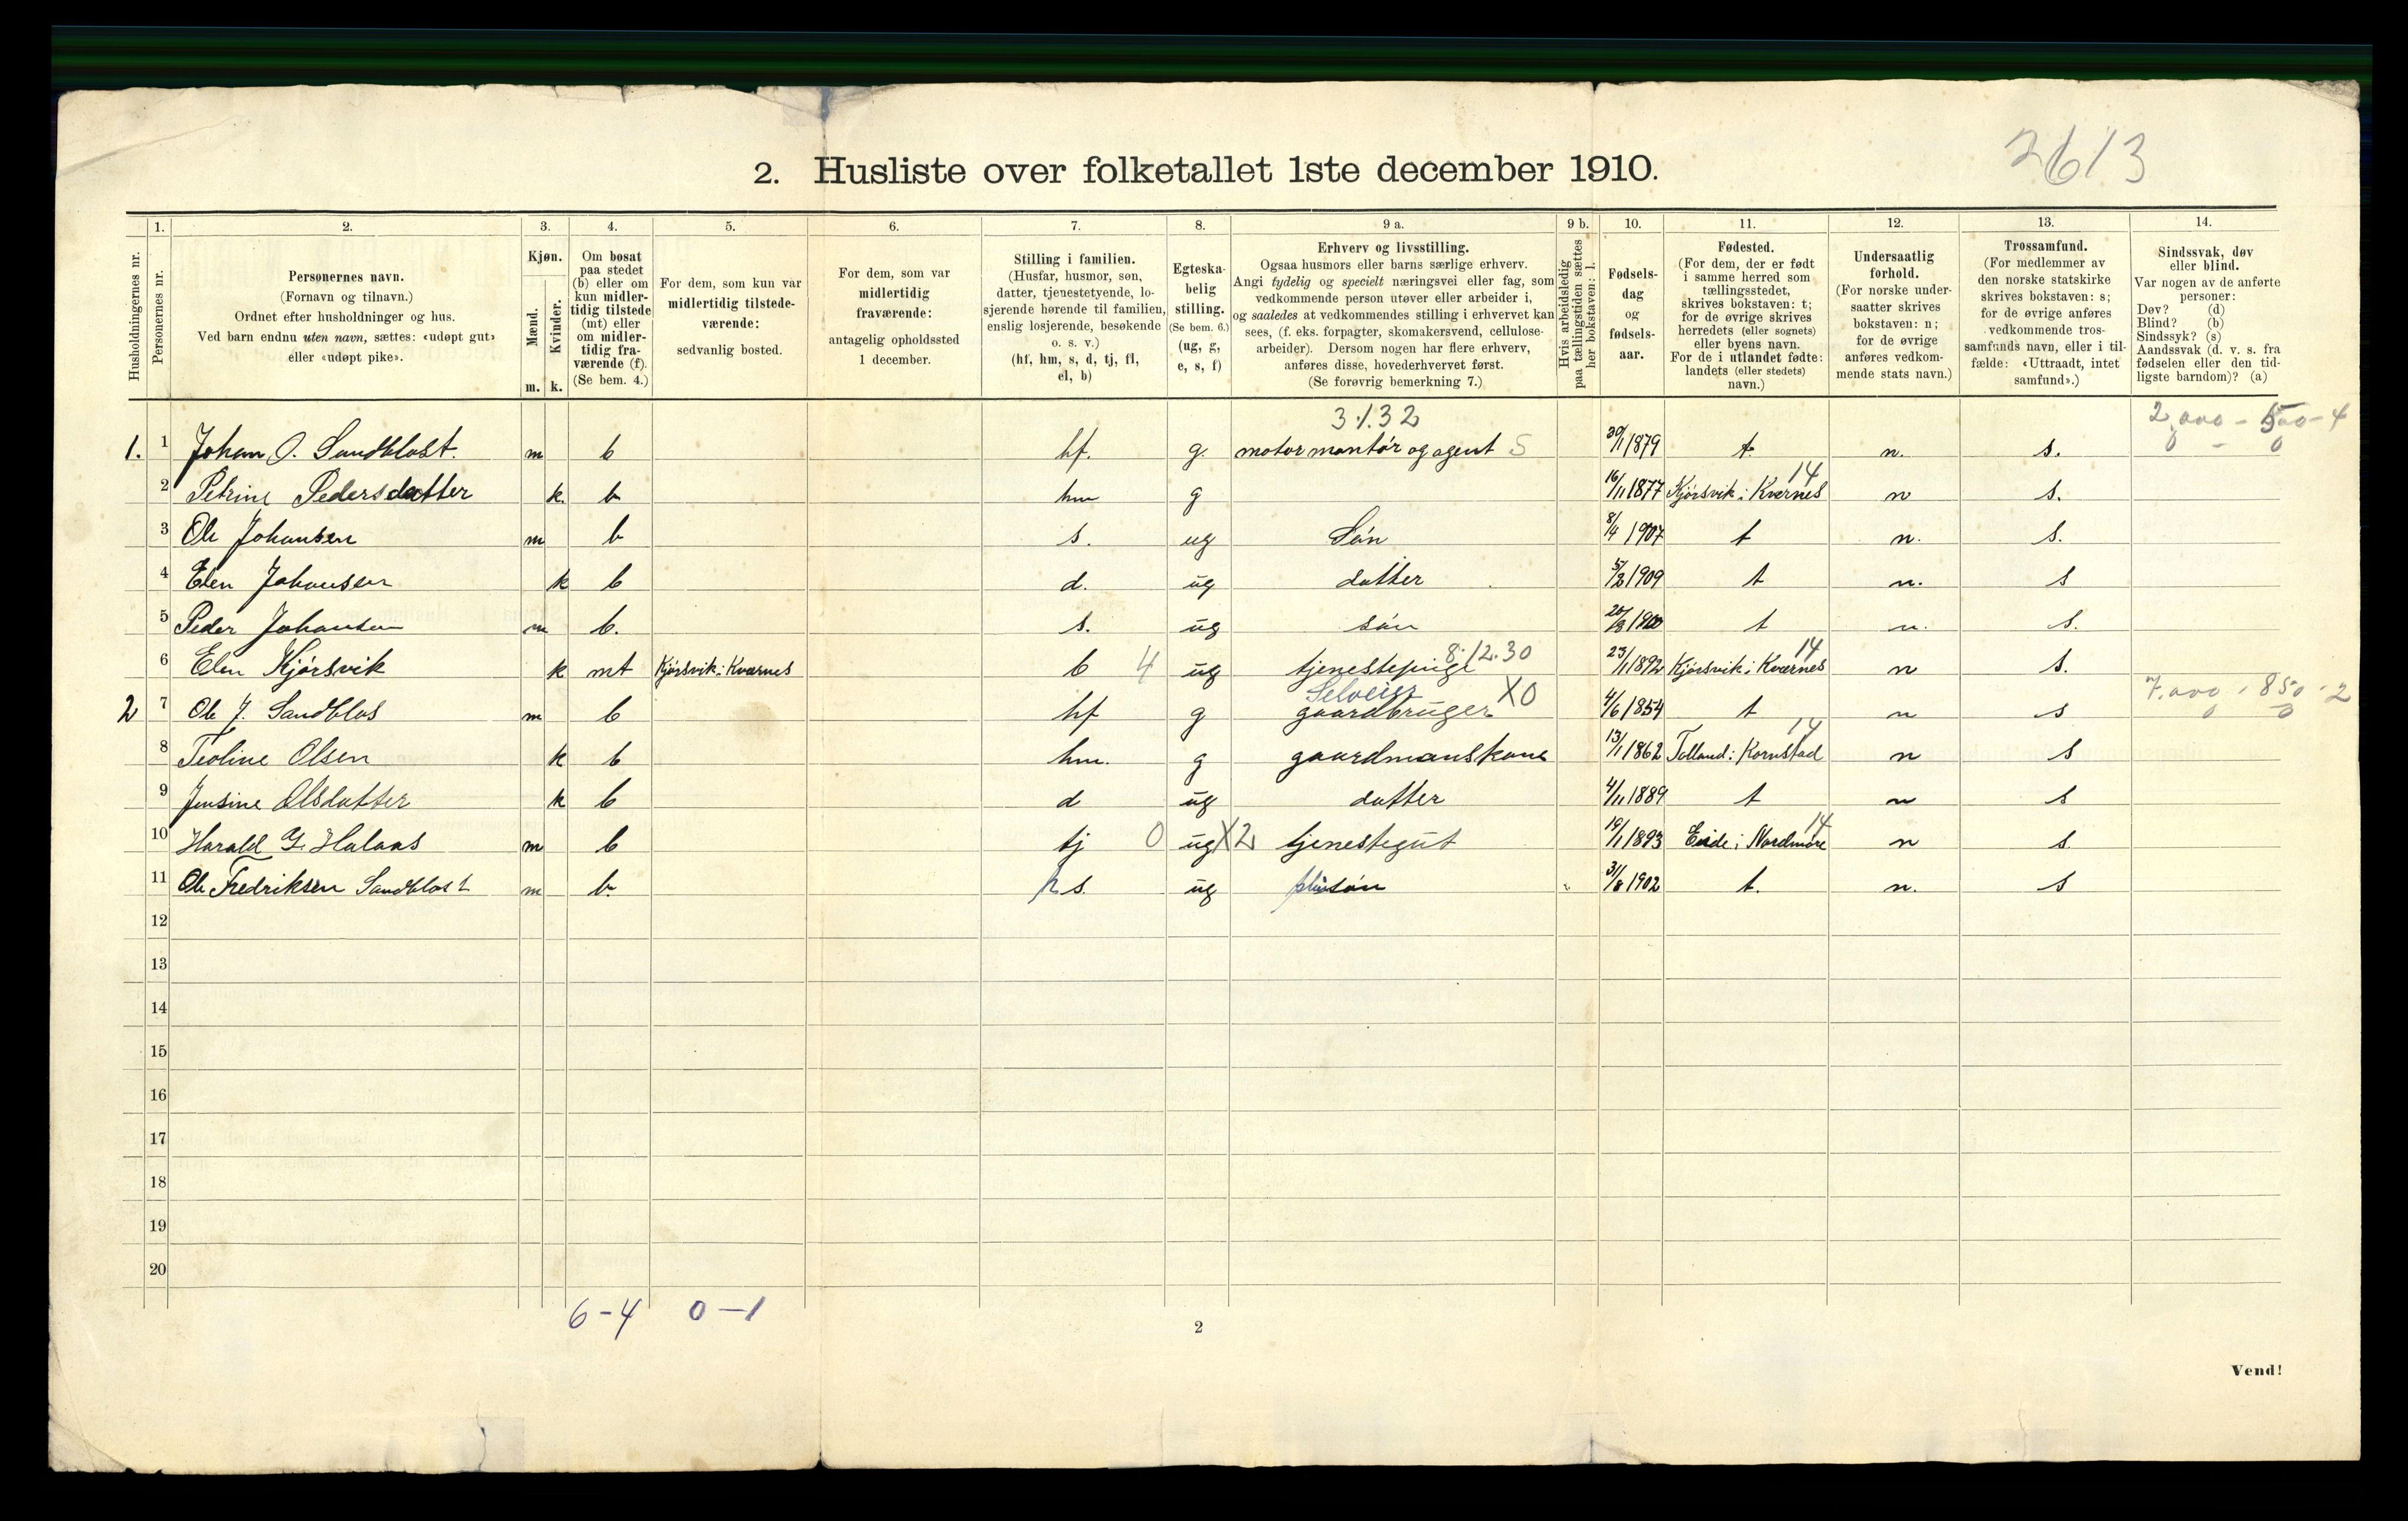 2613
2. Husliste over folketallet 1ste december 1910.
Husholdningernes nr.
1. Personernes nr.
2. Personernes navn.
(Fornavn og tilnavn.)
Ordnet efter husholdninger og hus.
Ved barn endnu uten navn, sættes: «udøpt gut»
eller «udøpt pike».
3. Kjøn.
Mænd. m.
Kvinder. k.
4. Om bosat
paa stedet
(b) eller om
kun midler-
tidig tilstede
(mt) eller
om midler-
tidig fra-
værende (f).
(Se bem. 4.)
5. For dem, som kun var
midlertidig tilstede-
værende:
sedvanlig bosted.
6. For dem, som var
midlertidig
fraværende:
antagelig opholdssted
1 december.
7. Stilling i familien.
(Husfar, husmor, søn,
datter, tjenestetyende, lo-
sjerende hørende til familien,
enslig losjerende, besøkende
o. s. v.)
(hf, hm, s, d, tj, fl,
el, b)
8. Egteska-
belig
stilling.
(Se bem. 6.)
(ug, g,
e, s, f)
9 a. Erhverv og livsstilling.
Ogsaa husmors eller barns særlige erhverv.
Angi tydelig og specielt næringsvei eller fag, som
vedkommende person utøver eller arbeider i,
og saaledes at vedkommendes stilling i erhvervet kan
sees, (f. eks. forpagter, skomakersvend, cellulose-
arbeider). Dersom nogen har flere erhverv,
anføres disse, hovederhvervet først.
(Se forøvrig bemerkning 7.)
9 b. Hvis arbeidsledig
paa tællingstiden sættes
her bokstaven: l.
10. Fødsels-
dag
og
fødsels-
aar.
11. Fødested.
(For dem, der er født
i samme herred som
tællingsstedet,
skrives bokstaven: t;
for de øvrige skrives
herredets (eller sognets)
eller byens navn.
For de i utlandet fødte:
landets (eller stedets)
navn.)
12. Undersaatlig
forhold.
(For norske under-
saatter skrives
bokstaven: n;
for de øvrige
anføres vedkom-
mende stats navn.)
13. Trossamfund.
(For medlemmer av
den norske statskirke
skrives bokstaven: s;
for de øvrige anføres
vedkommende tros-
samfunds navn, eller i til-
fælde: «Uttraadt, intet
samfund».)
14. Sindssvak, døv
eller blind.
Var nogen av de anførte
personer:
Døv? (d)
Blind? (b)
Sindssyk? (s)
Aandssvak (d. v. s. fra
fødselen eller den tid-
ligste barndom)? (a)
3.1.32 2.000 - 500 - 4
0 - 0
1. 1 Johan O. Sandblost. m b hf. g. motormontør og agent 5 30/1 1879 t. n. s.
2 Petrine Pedersdatter k. b hm g 16/11 1877 Kjørsvik i Kvernes 14 n s.
3 Ole Johansen m b s. ug Søn 8/4 1907 t n. s.
4 Elen Johansen k b d. ug datter 5/2 1909 t n. s
5 Peder Johansen m b. s. ug søn 20/8 1900 t n. s.
6 Elen Kjørsvik k mt Kjørsvik i Kvernes b 4 ug tjenestepige 8.12.30 23/1 1892 Kjørsvik i Kvernes 14 n s.
Selveier X0 7.000 - 850 - 2
0 0
2 7 Ole J. Sandblos m b hf g gaardbruger 4/6 1854 t n s
8 Teoline Olsen k b hm. g gaardmanskone 13/1 1862 Tolland i Kornstad 14 n s
9 Jensine Olsdatter k b d ug datter 4/11 1889 t n s
10 Harald G. Halaas m b tj 0 ug X2 tjenestegut 19/1 1893 Eide i Nordmøre 14 n s.
11 Ole Fredriksen Sandblost m b. s. ug søn 31/8 1902 t. n. s
12
13
14
15
16
17
18
19
20
6-4 0-1
2
Vend!